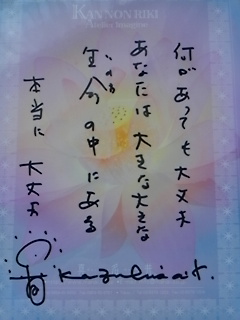 KANNON RIKI
何があっても大丈夫
あなたは大きな大きな
生命の中にある
いのち
本当に 大丈夫